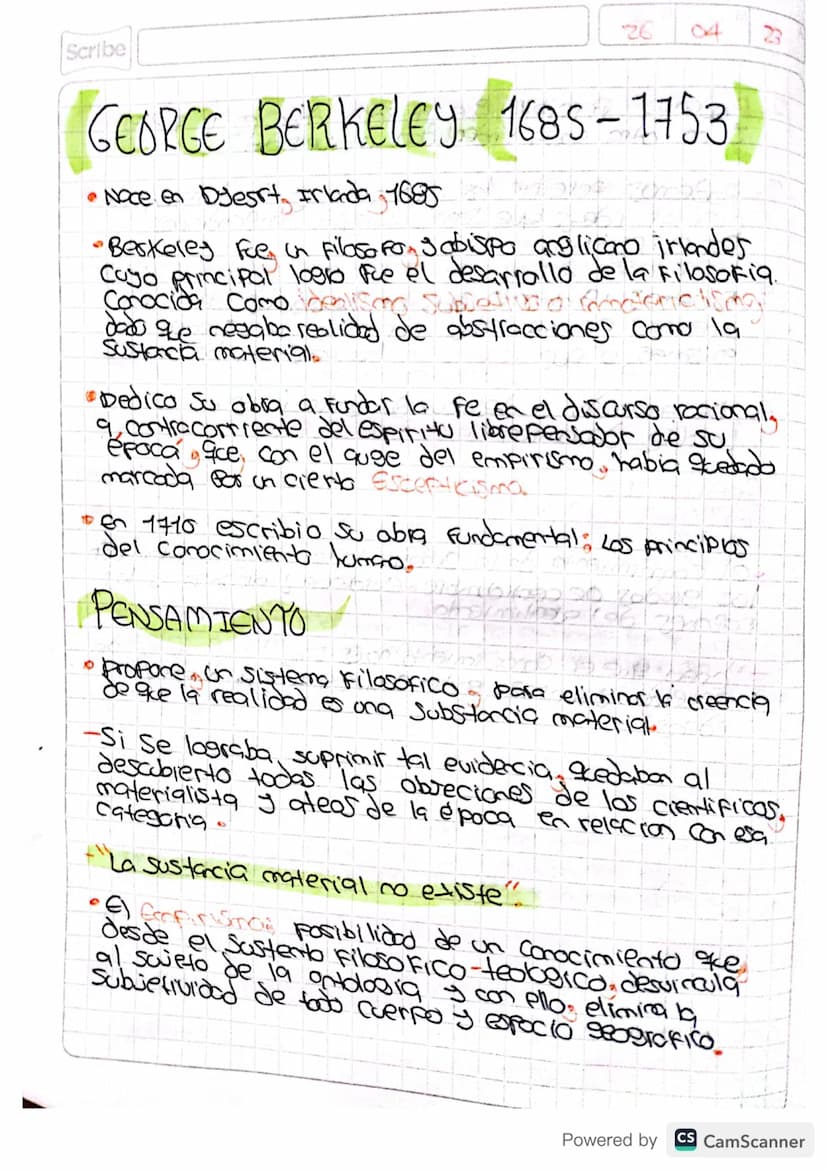 Scribe
26 04 23
GEORGE BERKELEY (1685-1753)
• Nace en Dysert, Irlanda, 1685
• Berkeley fue, un filosofo, y obispo anglicano irlandes
cuyo principal logro fue el desarrollo de la filosofia
conocida como idealismo subjetivo o inmaterialismo,
dado que negaba realidad de abstracciones como la
sustacia material.
• Dedico su obra a fundar la fe en el discurso racional,
a contracorriente del espiritu librepensador de su
época, que, con el auge del empirismo, habia quedado
marcada por un cierto Escepticismo.
• en 1710 escribio su obra fundamental; Los principios
del conocimiento humano.
PENSAMIENTO
• propone, un sistema filosofico, para eliminar la creencia
de que la realidad es una substancia material.
- Si se lograba, suprimir tal evidencia, quedaban al
descubierto todas las objeciones de los cientificos,
materialista y ateos de la época en relacion con esa
categoria.
- "La sustancia material no existe".
• El Empirismo: posibilidad de un conocimiento que,
desde el sustento filosofico-teologico, desvincula
al sujeto de la ontologia y con ello, elimina la
subjetividad de todo cuerpo y espacio geografico.
Powered by CS CamScanner